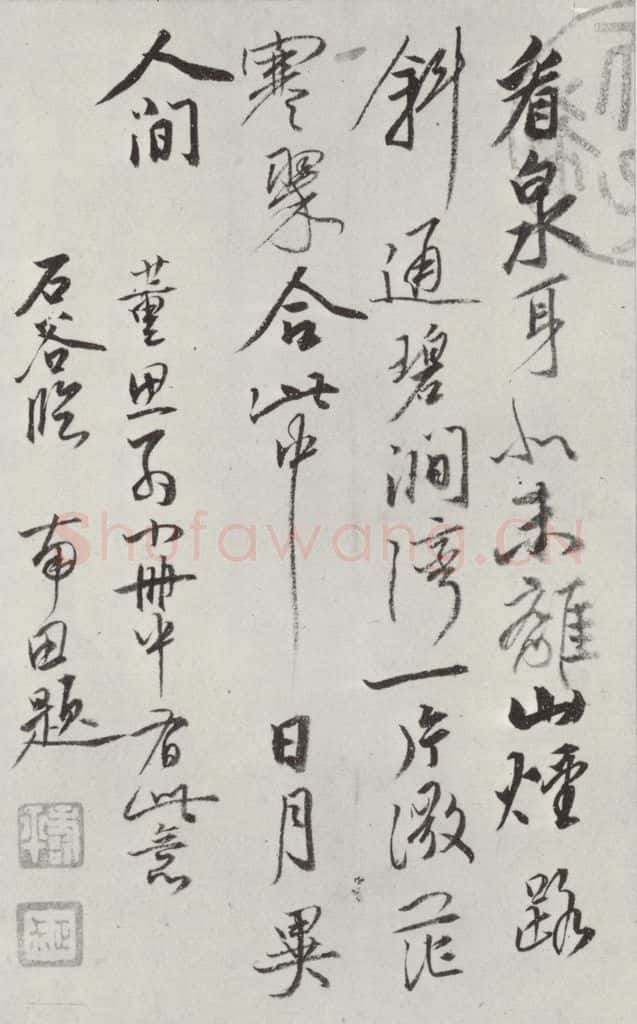 看泉身似未離山煙路
斜通碧澗灣一片微茫
寒翠合此中日月異
人間
董思翁小冊中有此意
石谷臨 南田題
Shufawang.CN